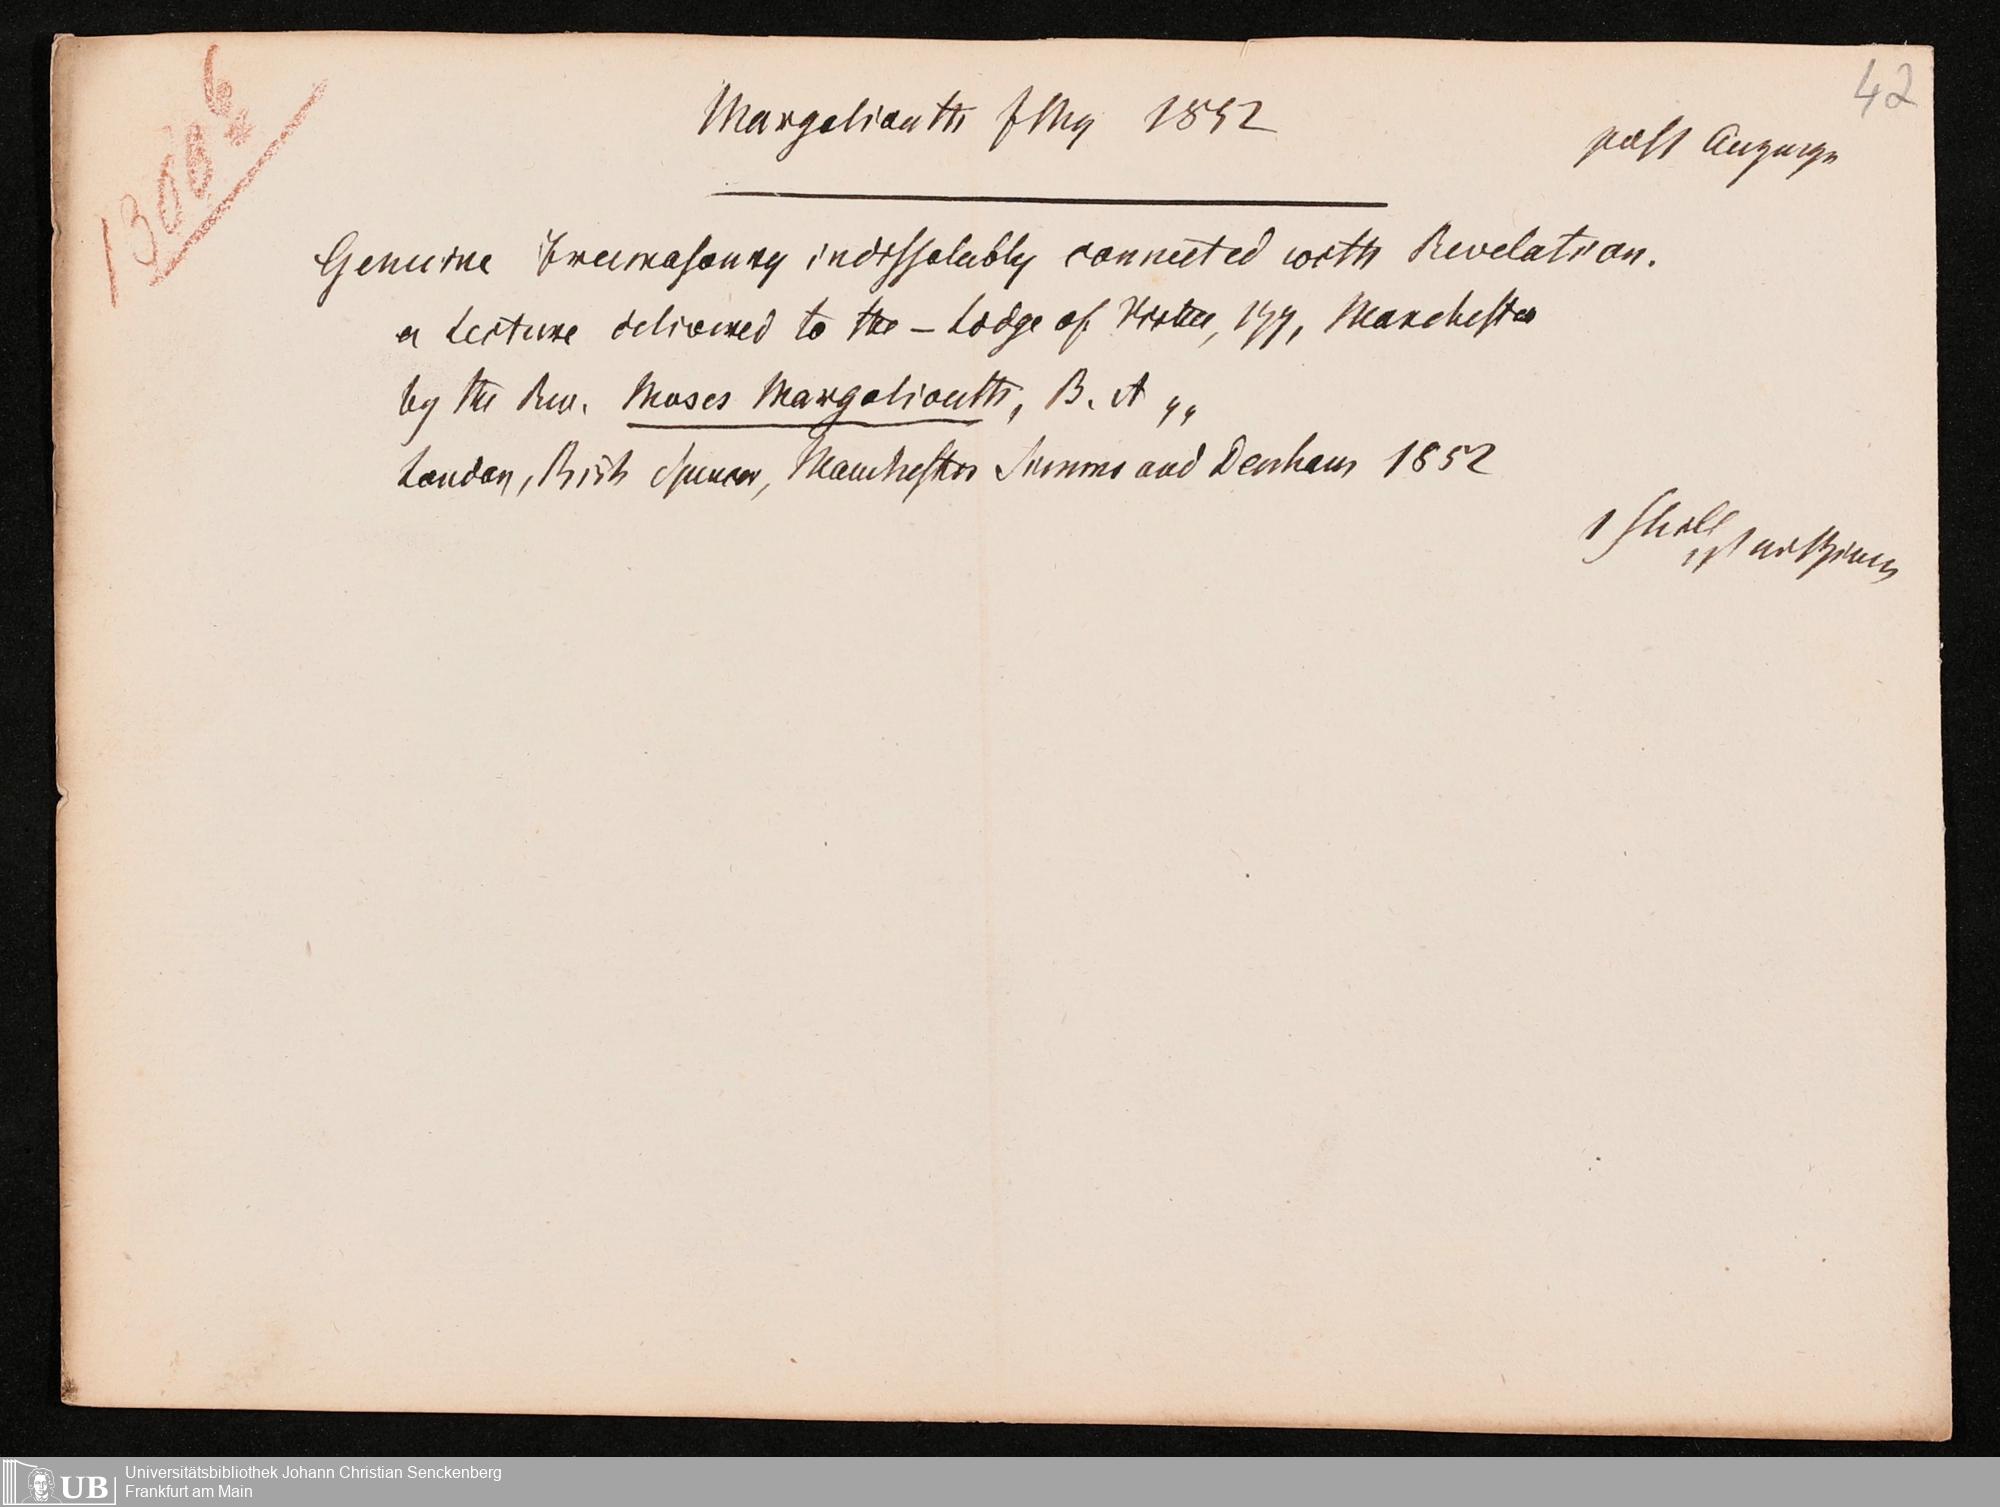 42
Margoliouth 1852
Genuine Freemasonry indissolubly connected with Revelation.
a Lecture delivered to the – Lodge of Virtue, 177, Manchester
by the Rev. Moses Margoliouth, B. A „
London, Rich Spencer, Manchester Simms and Denham 1852
1 Shill
Universitätsbibliothek Johann Christian Senckenberg
UB Frankfurt am Main